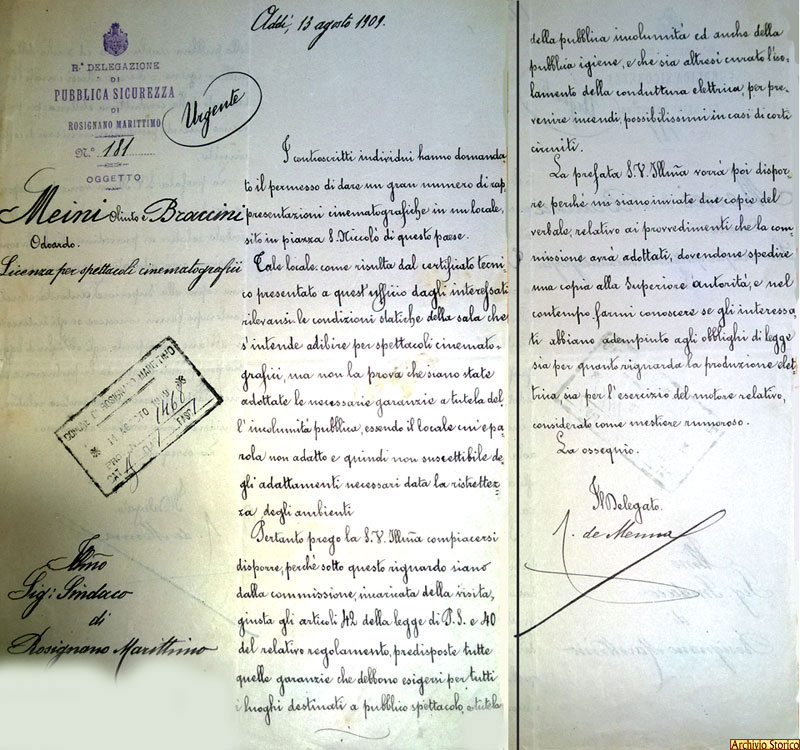 Addì, 13 agosto 1909.
Rª DELEGAZIONE
DI
PUBBLICA SICUREZZA
DI
ROSIGNANO MARITTIMO
N.° 181
OGGETTO
Urgente
Meini Olinto e Braccini
Odoardo.
Licenza per spettacoli cinematografici
COMUNE DI ROSIGNANO MARITTIMO
14 AGOSTO
1461
CAT.
FASC.
Illmo
Sig: Sindaco
di
Rosignano Marittimo
I controscritti individui hanno domanda
to il permesso di dare un gran numero di rap
presentazioni cinematografiche in un locale,
sito in piazza S. Niccolò di questo paese.
Tale locale come risulta dal certificato tecni
co presentato a quest'uffico dagli interessati
rilevansi le condizioni statiche della sala che
s'intende adibire per spettacoli cinemato-
grafici, ma non la prova che siano state
adottate le necessarie garanzie a tutela del
l'incolumità pubblica, essendo il locale in e pa
rola non adatto e quindi non suscettibile de
gli adattamenti necessari data la ristrettez
za degli ambienti
Pertanto prego la S.V. Illma compiacersi
disporre, perchè sotto questo riguardo siano
dalla commissione, incaricata della visita,
giusta gli articoli 42 della legge di P.S. e 40
del relativo regolamento, predisposte tutte
quelle garanzie che debbono esigersi per tutti
i luoghi destinati a pubblico spettacolo, a tutela
della pubblica incolumità ed anche della
pubblica igiene, e che sia altresì curato l'iso-
lamento della conduttura elettrica, per pre
venire incendi, possibilissimi in casi di corti
circuiti.
La prefata S.V. Illma vorrà poi dispor
re, perchè mi siano inviate due copie del
verbale, relativo ai provvedimenti che la com
missione avrà adottati, dovendone spedire
una copia alla Superiore autorità, e nel
contempo farmi conoscere se gli interessa
ti abbiano adempiuto agli obblighi di legge
sia per quanto riguarda la produzione elet
trica sia per l'esercizio del motore relativo,
considerato come mestiere rumoroso.
La ossequio.
Il Delegato.
de Menna
Archivio Storico